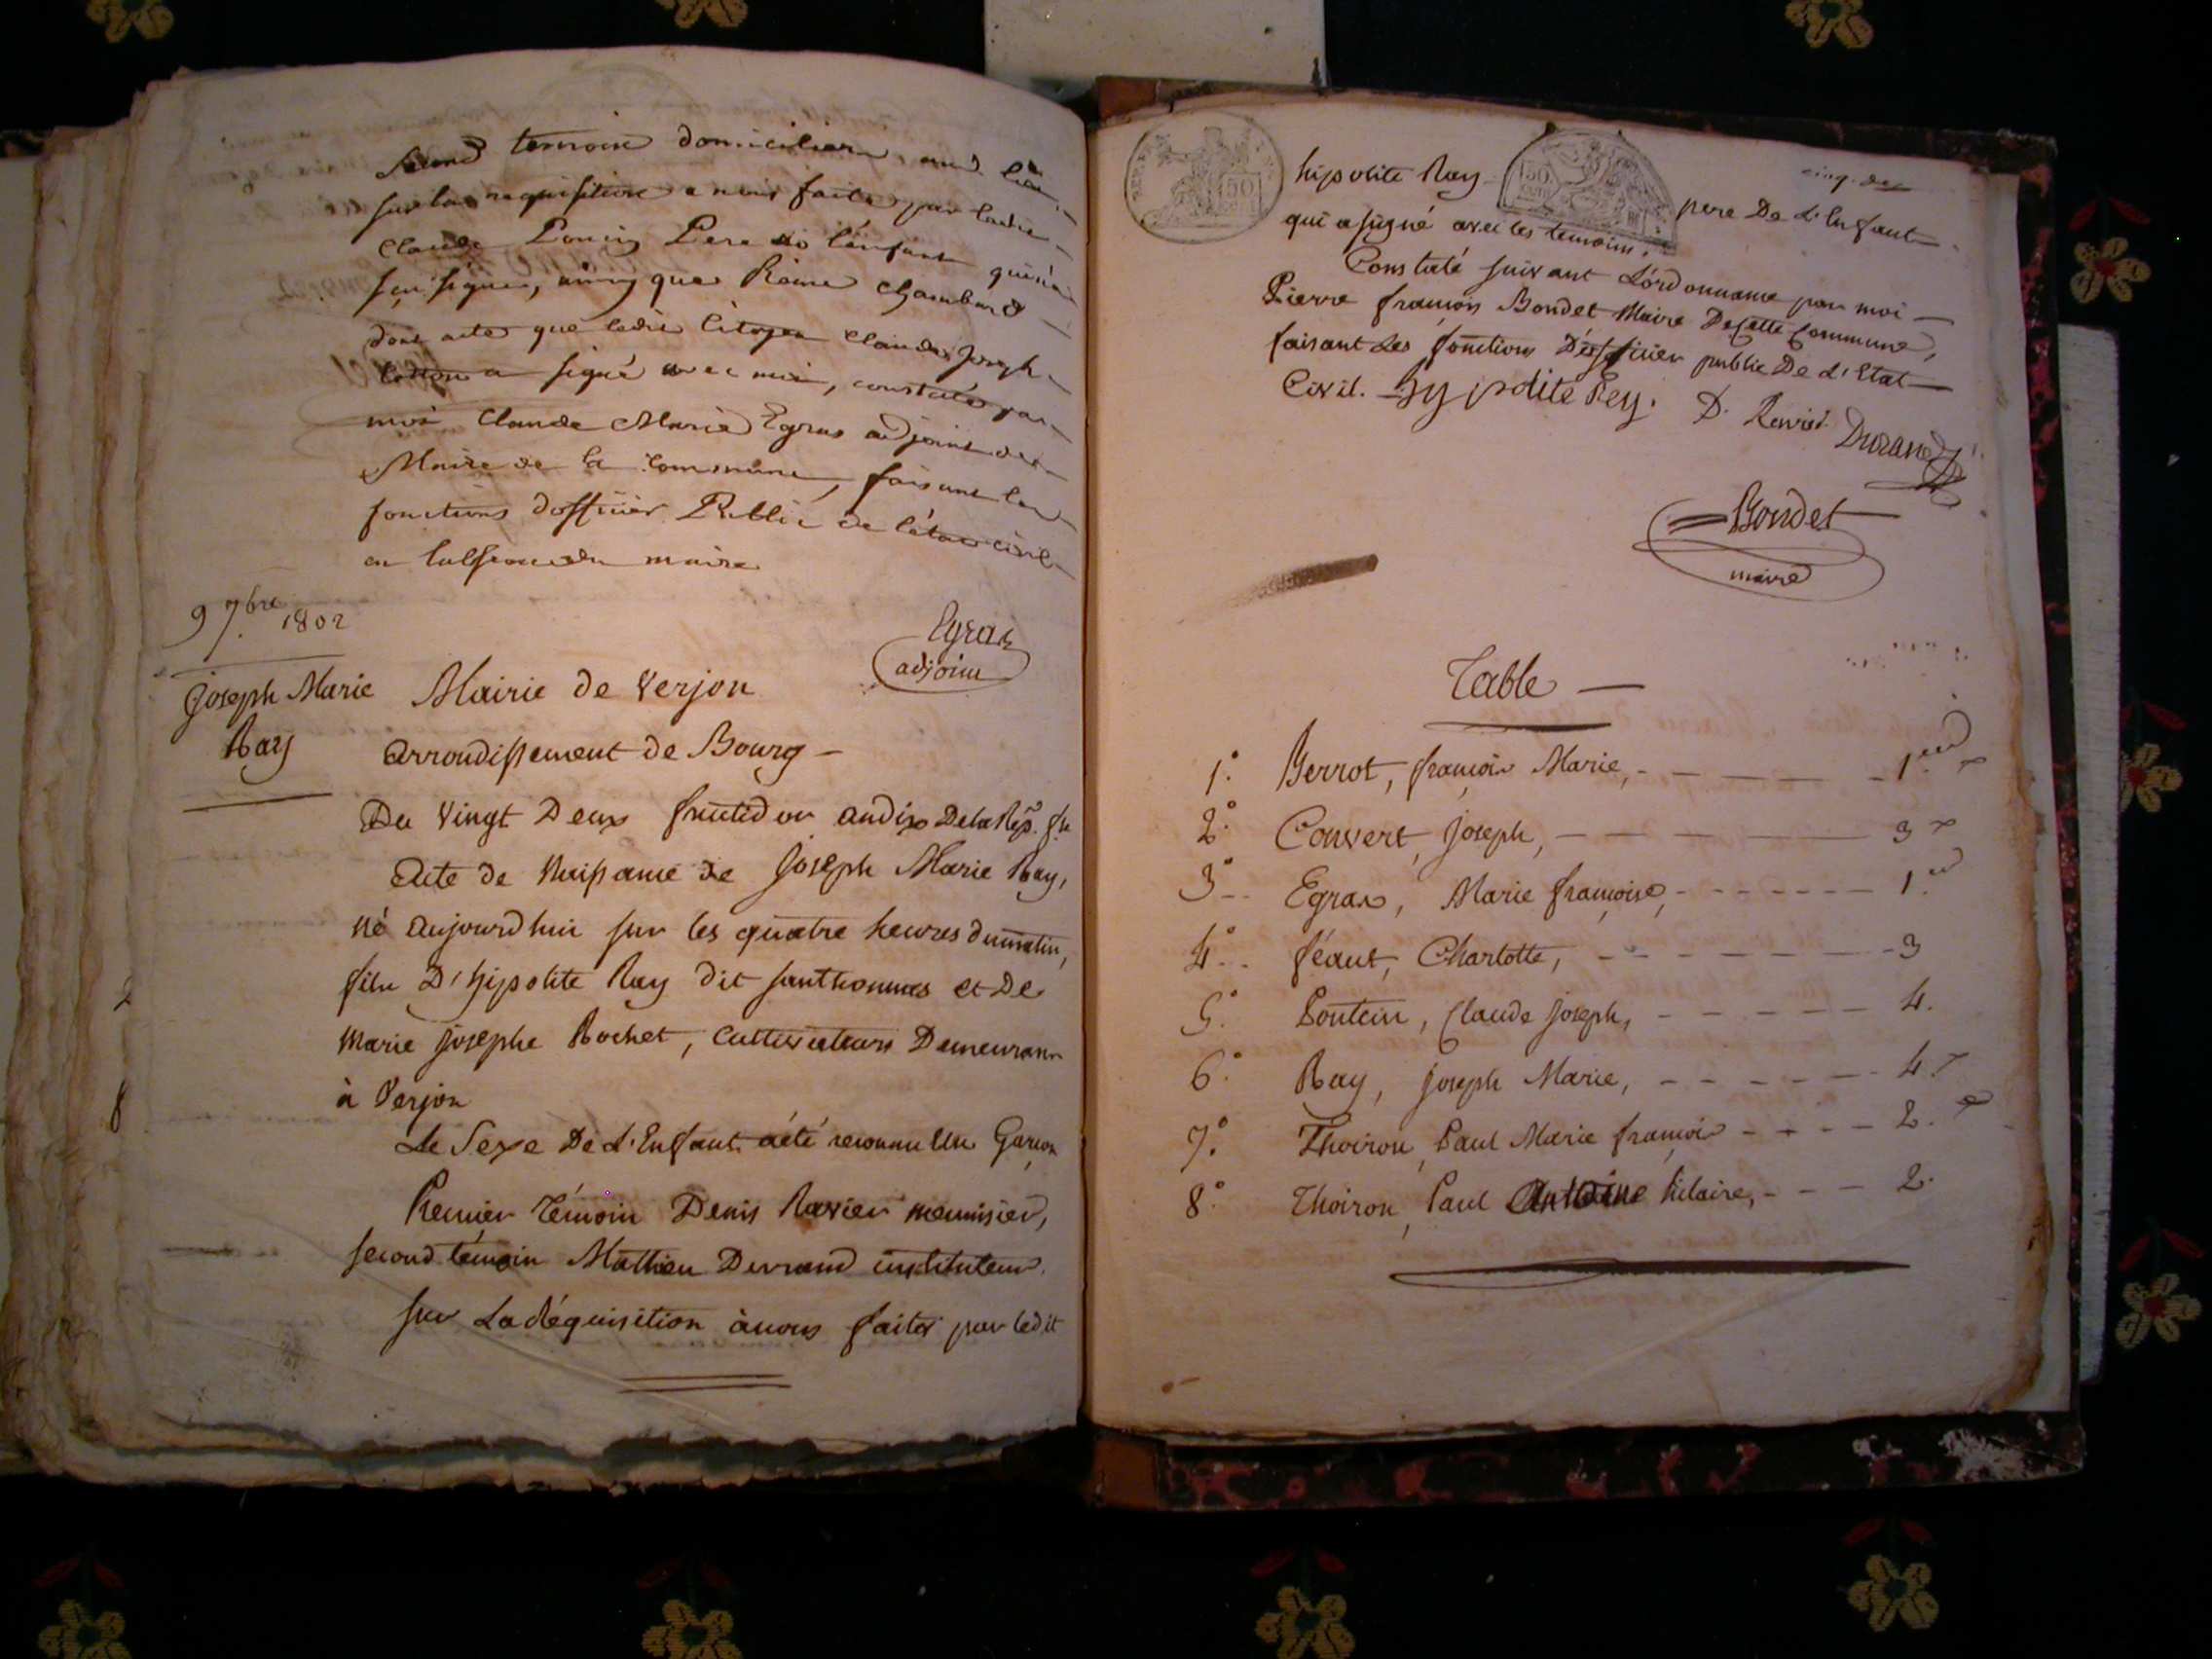 Second temoin domicilier aud. lieu
sur la requisition a nous faite par ledit
Claude Poncin Pere de l'enfant qui n'a
seu signer, ainsy que Reine Chambard
dont acte que ledit Citoyen Claude Joseph
a signé avec moi, constatés par
moi Claude Marie Egraz adjoint du
Maire de la Commune, faisant les
fonctions d'officier Public de l'état civil
en l'absence du maire
Egraz
adjoint
9 7bre 1802
Joseph Marie
Ray
Mairie de Verjon
Arrondissement de Bourg —
Du Vingt Deux fructidor an dix De la Rép. fse
Acte de Naissance de Joseph Marie Ray,
né aujourdhui sur les quatre heures du matin,
fils D'hipolite Ray dit santhonnas et De
Marie Josephe Rochet, Cultivateurs Demeurant
à Verjon
Le Sexe De L'Enfant a été reconnu Un Garçon
Premier Témoin Denis Ravier menuisier,
second témoin Mathieu Durand instituteur.
sur La réquisition à nous faite par ledit
2
8
50
50
cinq. 
hipolite Ray pere De L'Enfant
qui a signé avec les temoins.
Constaté suivant L'ordonnance par moi —
Pierre françois Bondet Maire De Cette Commune,
faisant Les fonctions D'officier public De L'Etat
Civil. Hypolite Rey. D. Ravier Durand
Bondet
maire
Table —
1° Berrot, françois Marie, - - - - 1er
2° Convert, Joseph, - - - - 3
3° Egraz, Marie françoise, - - - - 1er
4° féaut, Charlotte, - - - - 3
5° Pontcin, Claude Joseph, - - - - 4.
6° Ray, Joseph Marie, - - - - 4.
7° Thoiron, Paul Marie françois - - - - 2.
8° Thoiron, Paul Antoine hilaire, - - - 2.